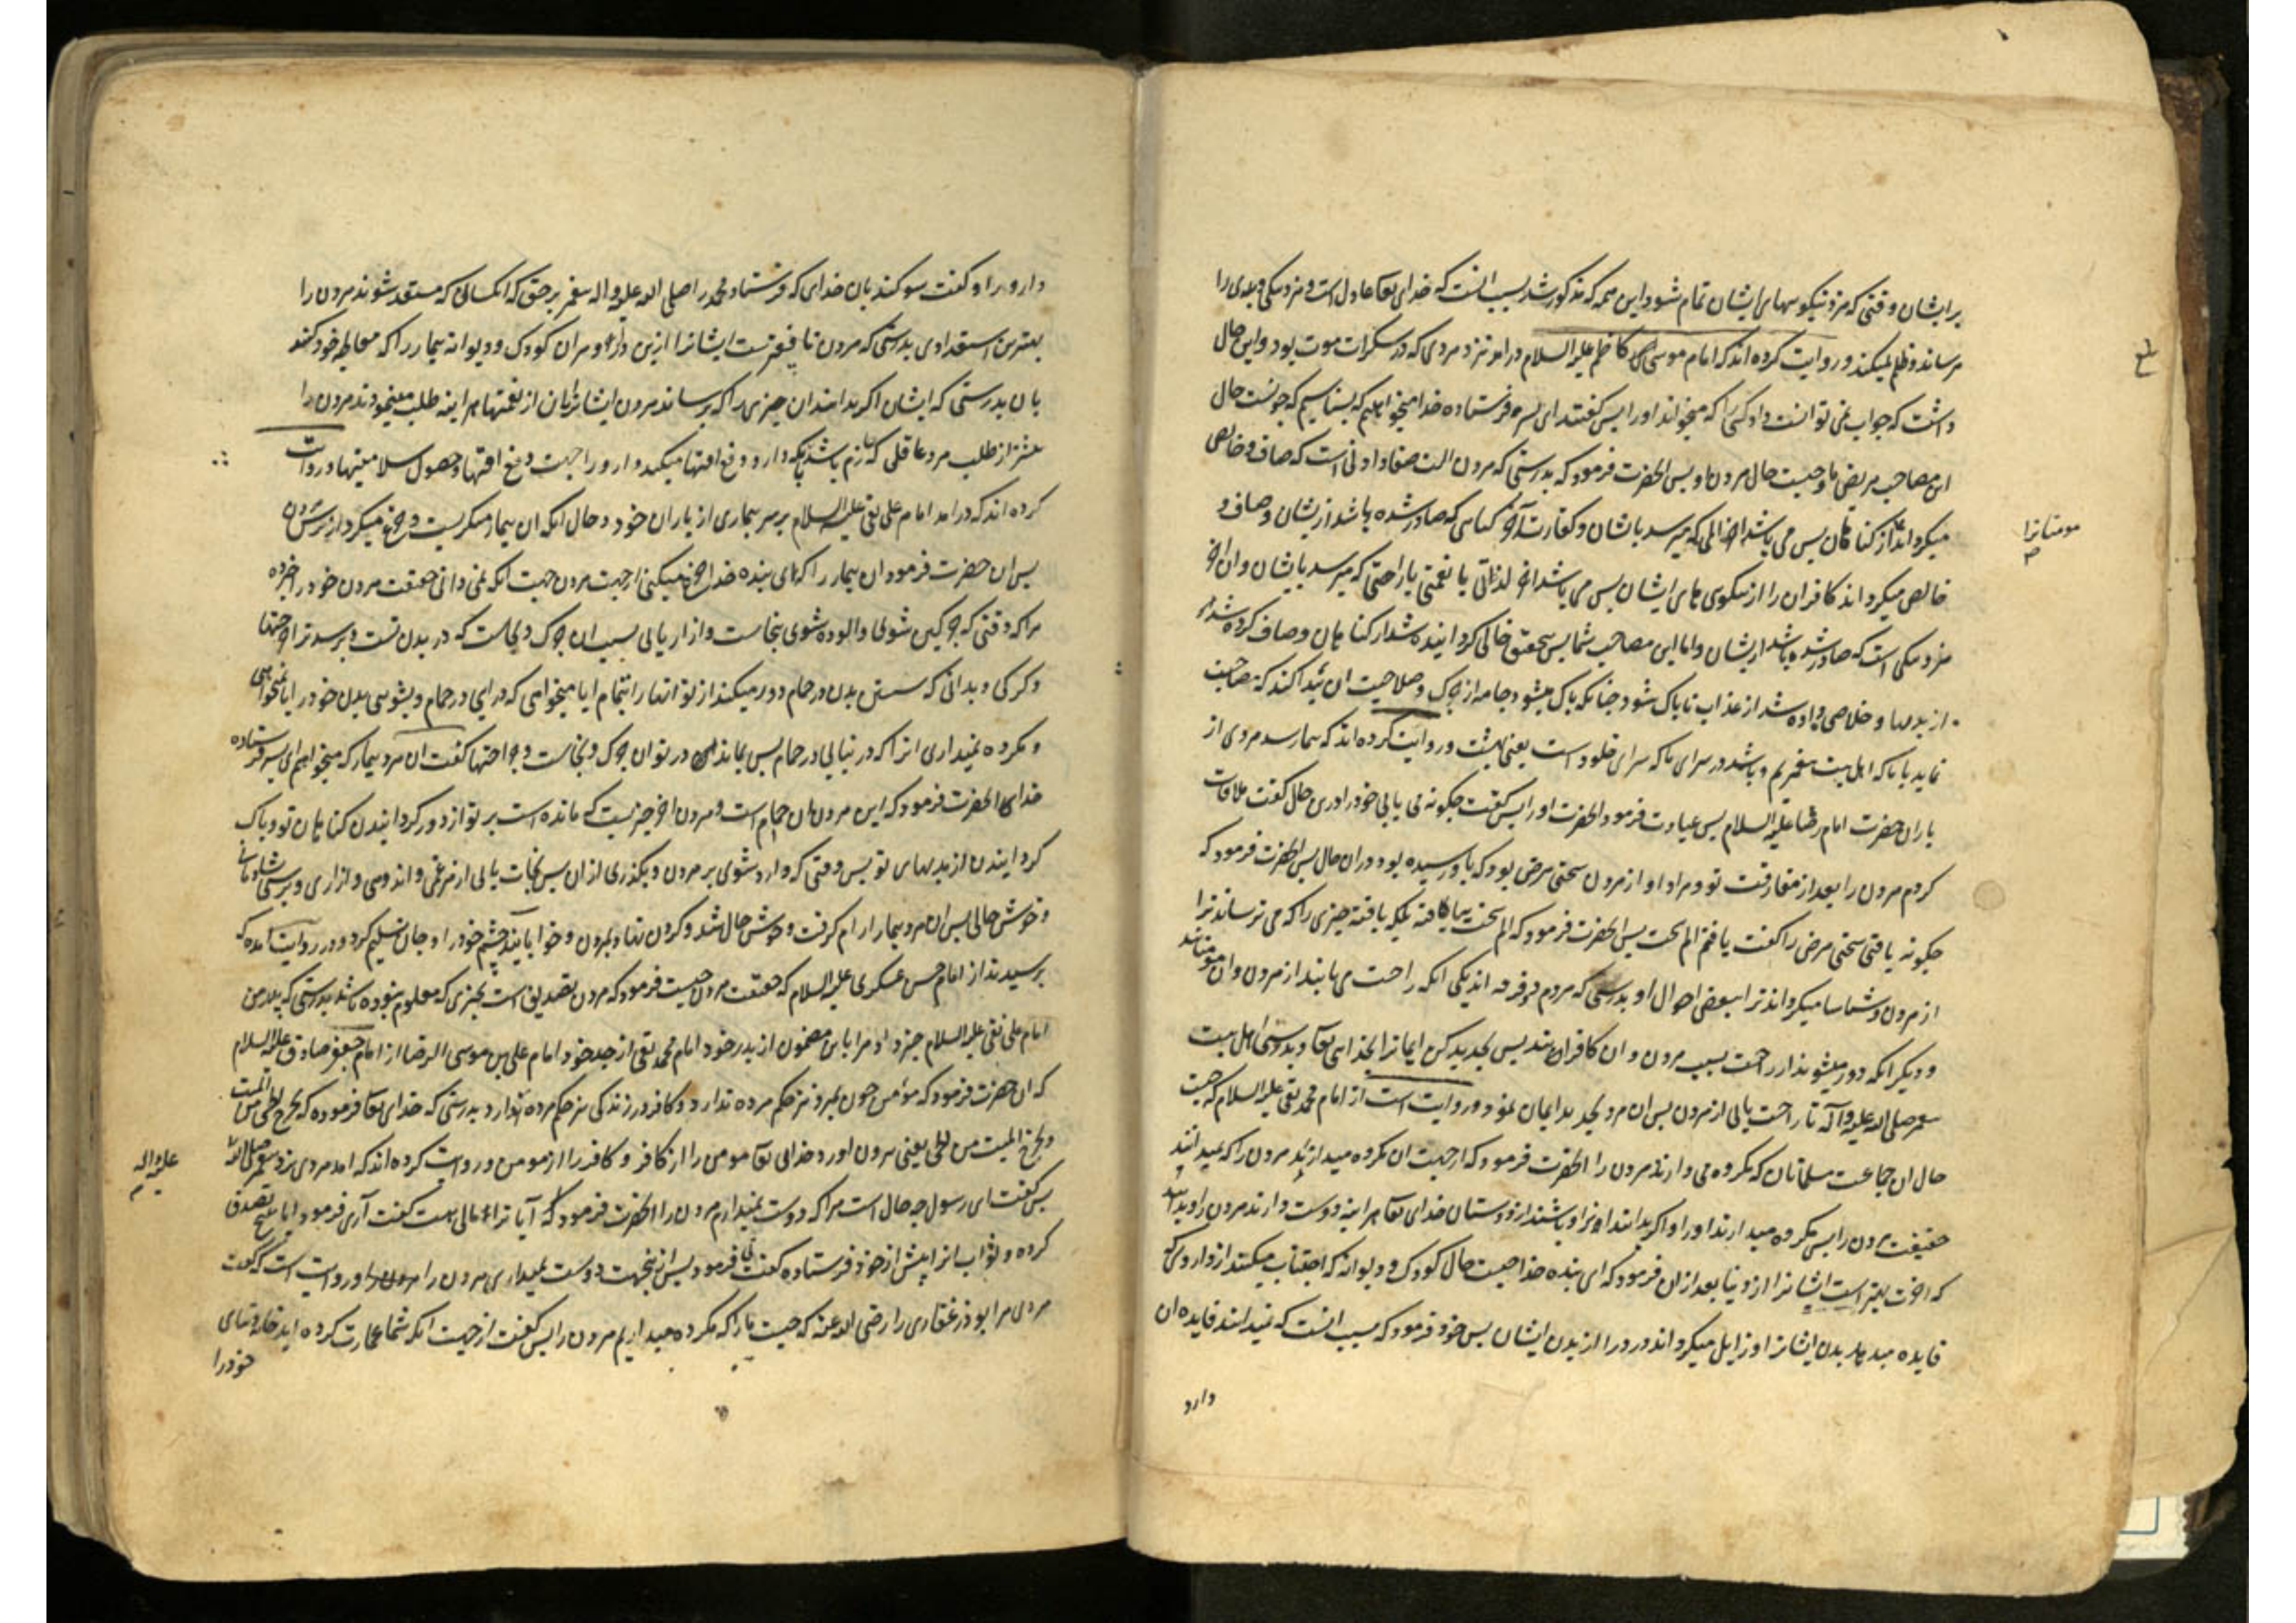 بر ایشان وقتی که مزد نیکوییهای ایشان تمام شود و این همه که مذکور شد بسبب انست که خدای تعا عادل است و مزد نیکی و بدی را
میرساند و ظلم نمیکند و روایت کرده اند که امام موسی کاظم علیه السلام درامد نزد مردی که در سکرات موت بود و این حال
داشت که جواب نمی توانست داد کسی را که میخواند او را پس گفتند ای پسر فرستاده خدا میخواهیم که بشناسیم که چونست حال
این مصاحب مریض ما و چیست حال مردن ما و پس انحضرت فرمود که بدرستی که مردن الت صفا دادنی است که صاف و خالص
میکرداند از کناهان پس می باشد اخر المی که میرسد بایشان و کفارت آخر کناهی که صادر شده باشد از یشان و صاف و
مومنانرا
خالص میکرداند کافران را از نیکوی های ایشان پس می باشد اخر لذاتی یا نعمتی یا راحتی که میرسد بایشان و ان اخر
مزد نیکی است که صادر شده باشد از یشان و اما این مصاحب شما پس بتحقیق خالی کردانیده شد از کناهان و صاف کرده شد
از بدیها و خلاصی داده شد از عذاب تا پاک شود چنانکه پاک میشود جامه از چرک و صلاحیت ان پیدا کند که مصاحبت
نماید با ما که اهل بیت پیغمبریم و باشد در سرای ما که سرای خلود است یعنی بهشت و روایت کرده اند که بیمار شد مردی از
یاران حضرت امام رضا علیه السلام پس عیادت فرمود انحضرت او را پس کفت چکونه می یابی خود را درین حال کفت ملاقات
کردم مردن را بعد از مفارقت تو و مراد او از مردن سختی مرض بود که باو رسیده بود در ان حال پس انحضرت فرمود که
چکونه یافتی سختی مرض را کفت یافتم الم سخت پس انحضرت فرمود که الم سخت نیافته بلکه یافته چیزی را که می ترساند ترا
از مردن و شناسا میکرداند ترا ببعضی احوال او بدرستی که مردم دو فرقه اند یکی انکه راحت می یابند از مردن و ان مومنانند
و دیکر انکه دور میشوند از راحت بسبب مردن و ان کافرانند پس تجدید کن ایمانرا بخدای تعا و بدوستی اهل بیت
پیغمبر صلی الله علیه و آله تا راحت یابی از مردن پس ان مرد تجدید ایمان نمود و روایت است از امام محمد تقی علیه السلام که چیست
حال ان جماعت مسلمانان که مکروه می دارند مردن را انحضرت فرمود که از جهت ان مکروه میدارند مردن را که نمیدانند
حقیقت مردن را پس مکروه میدارند او را و اکر بدانند او را و باشند از دوستان خدای تعا هراینه دوست دارند مردن را و بدانند
که اخرت بهتر است ایشانرا از دنیا بعد از ان فرمود که ای بنده خدا چیست حال کودک و دیوانه که اجتناب میکنند از داروی که
فایده میدهد بدن ایشانرا و زایل میکرداند درد را از بدن ایشان پس خود فرمود که سبب انست که نمیدانند فایده ان
دارو
دارو را و کفت سوکند بان خدای که فرستاد محمد را صلی الله علیه و اله پیغمبر بر حق که انکسانی که مستعد شوند مردن را
بهترین استعدادی بدرستی که مردن نافعترست ایشانرا ازین دارو مر ان کودک و دیوانه بیمار را که معالجه خود کنند
بان بدرستی که ایشان اکر بدانند ان چیزی را که برساند مردن ایشانرا بان از نعمتها هراینه طلب مینمودند مردن را
بیشتر از طلب مرد عاقلی که دفع افتها میکند دارو را جهت دفع افتها و حصول سلامتیها و روایت
کرده اند که درامد امام علی نقی علیه السلام بر سر بیماری از یاران خود و حال انکه ان بیمار میکریست و جزع میکرد از مردن
پس ان حضرت فرمود ان بیمار را که ای بنده خدا جزع میکنی از جهت مردن جهت انکه نمی دانی حقیقت مردن خود را خبر ده
مرا که وقتی که چرکین شوی و الوده شوی بنجاست و ازار یابی بسبب ان چرک و نجاست که در بدن تست و برسد ترا جراحتها
و کرکی و بدانی که شستن بدن در حمام دور میکند از تو انها را بتمام ایا میخواهی که درایی در حمام و بشویی بدن خود را یا نمیخواهی
و مکروه نمیداری انرا که در نیایی در حمام پس بماند در تو ان چرک و نجاست و جراحتها کفت ان مرد بیمار که میخواهم ای پسر فرستاده
خدای انحضرت فرمود که این مردن همان حمام است و مردن اخر چیزیست که مانده است بر تو از دور کردانیدن کناهان تو و پاک
کردانیدن از بدیهای تو پس وقتی که وارد شوی بر مردن و بکذری از ان پس نجات یابی از هر غمی و اندوهی و ازاری و برسی بشادمانی
و خوش حالی پس ان مرد بیمار ارام کرفت و خوش حال شد و کردن نهاد بمردن و خوابانید چشم خود را و جان تسلیم کرد و در روایت امده که
پرسیدند از امام حسن عسکری علیه السلام که حقیقت مردن چیست فرمود که مردن تصدیق است بچیزی که معلوم نبوده باشد بدرستی که پدر من
امام علی نقی علیه السلام خبر داد مرا باین مضمون از پدر خود امام محمد تقی از جد خود امام علی بن موسی الرضا از امام جعفر صادق علیه السلام
که ان حضرت فرمود که مؤمن چون بمیرد نیز حکم مرده ندارد و کافر در زندکی نیز حکم مرده دارد بدرستی که خدای تعا فرموده که یخرج الحی من المیت
و یخرج المیت من الحی یعنی بیرون اورد خدای تعا مومن را از کافر و کافر را از مومن و روایت کرده اند که امد مردی نزد پیغمبر صلی الله
علیه و اله
پس کفت ای رسول چه حال است مرا که دوست نمیدارم مردن را انحضرت فرمود که آیا ترا مالی هست کفت آری فرمود ایا هیچ تصدق
کرده و ثواب انرا پیش از خود فرستاده کفت نی فرمود پس از ینجهت دوست نمیداری مردن را و روایت است که کفت
مردی مر ابوذر غفاری را رضی الله عنه که چیست ما را که مکروه میداریم مردن را پس کفت از جهت انکه شما عمارت کرده اید خانه دنیای
خود را